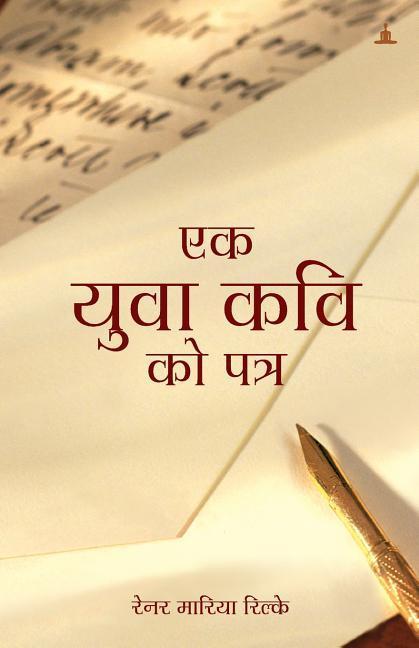 एक
युवा कवि
को पत्र
रेनर मारिया रिल्के